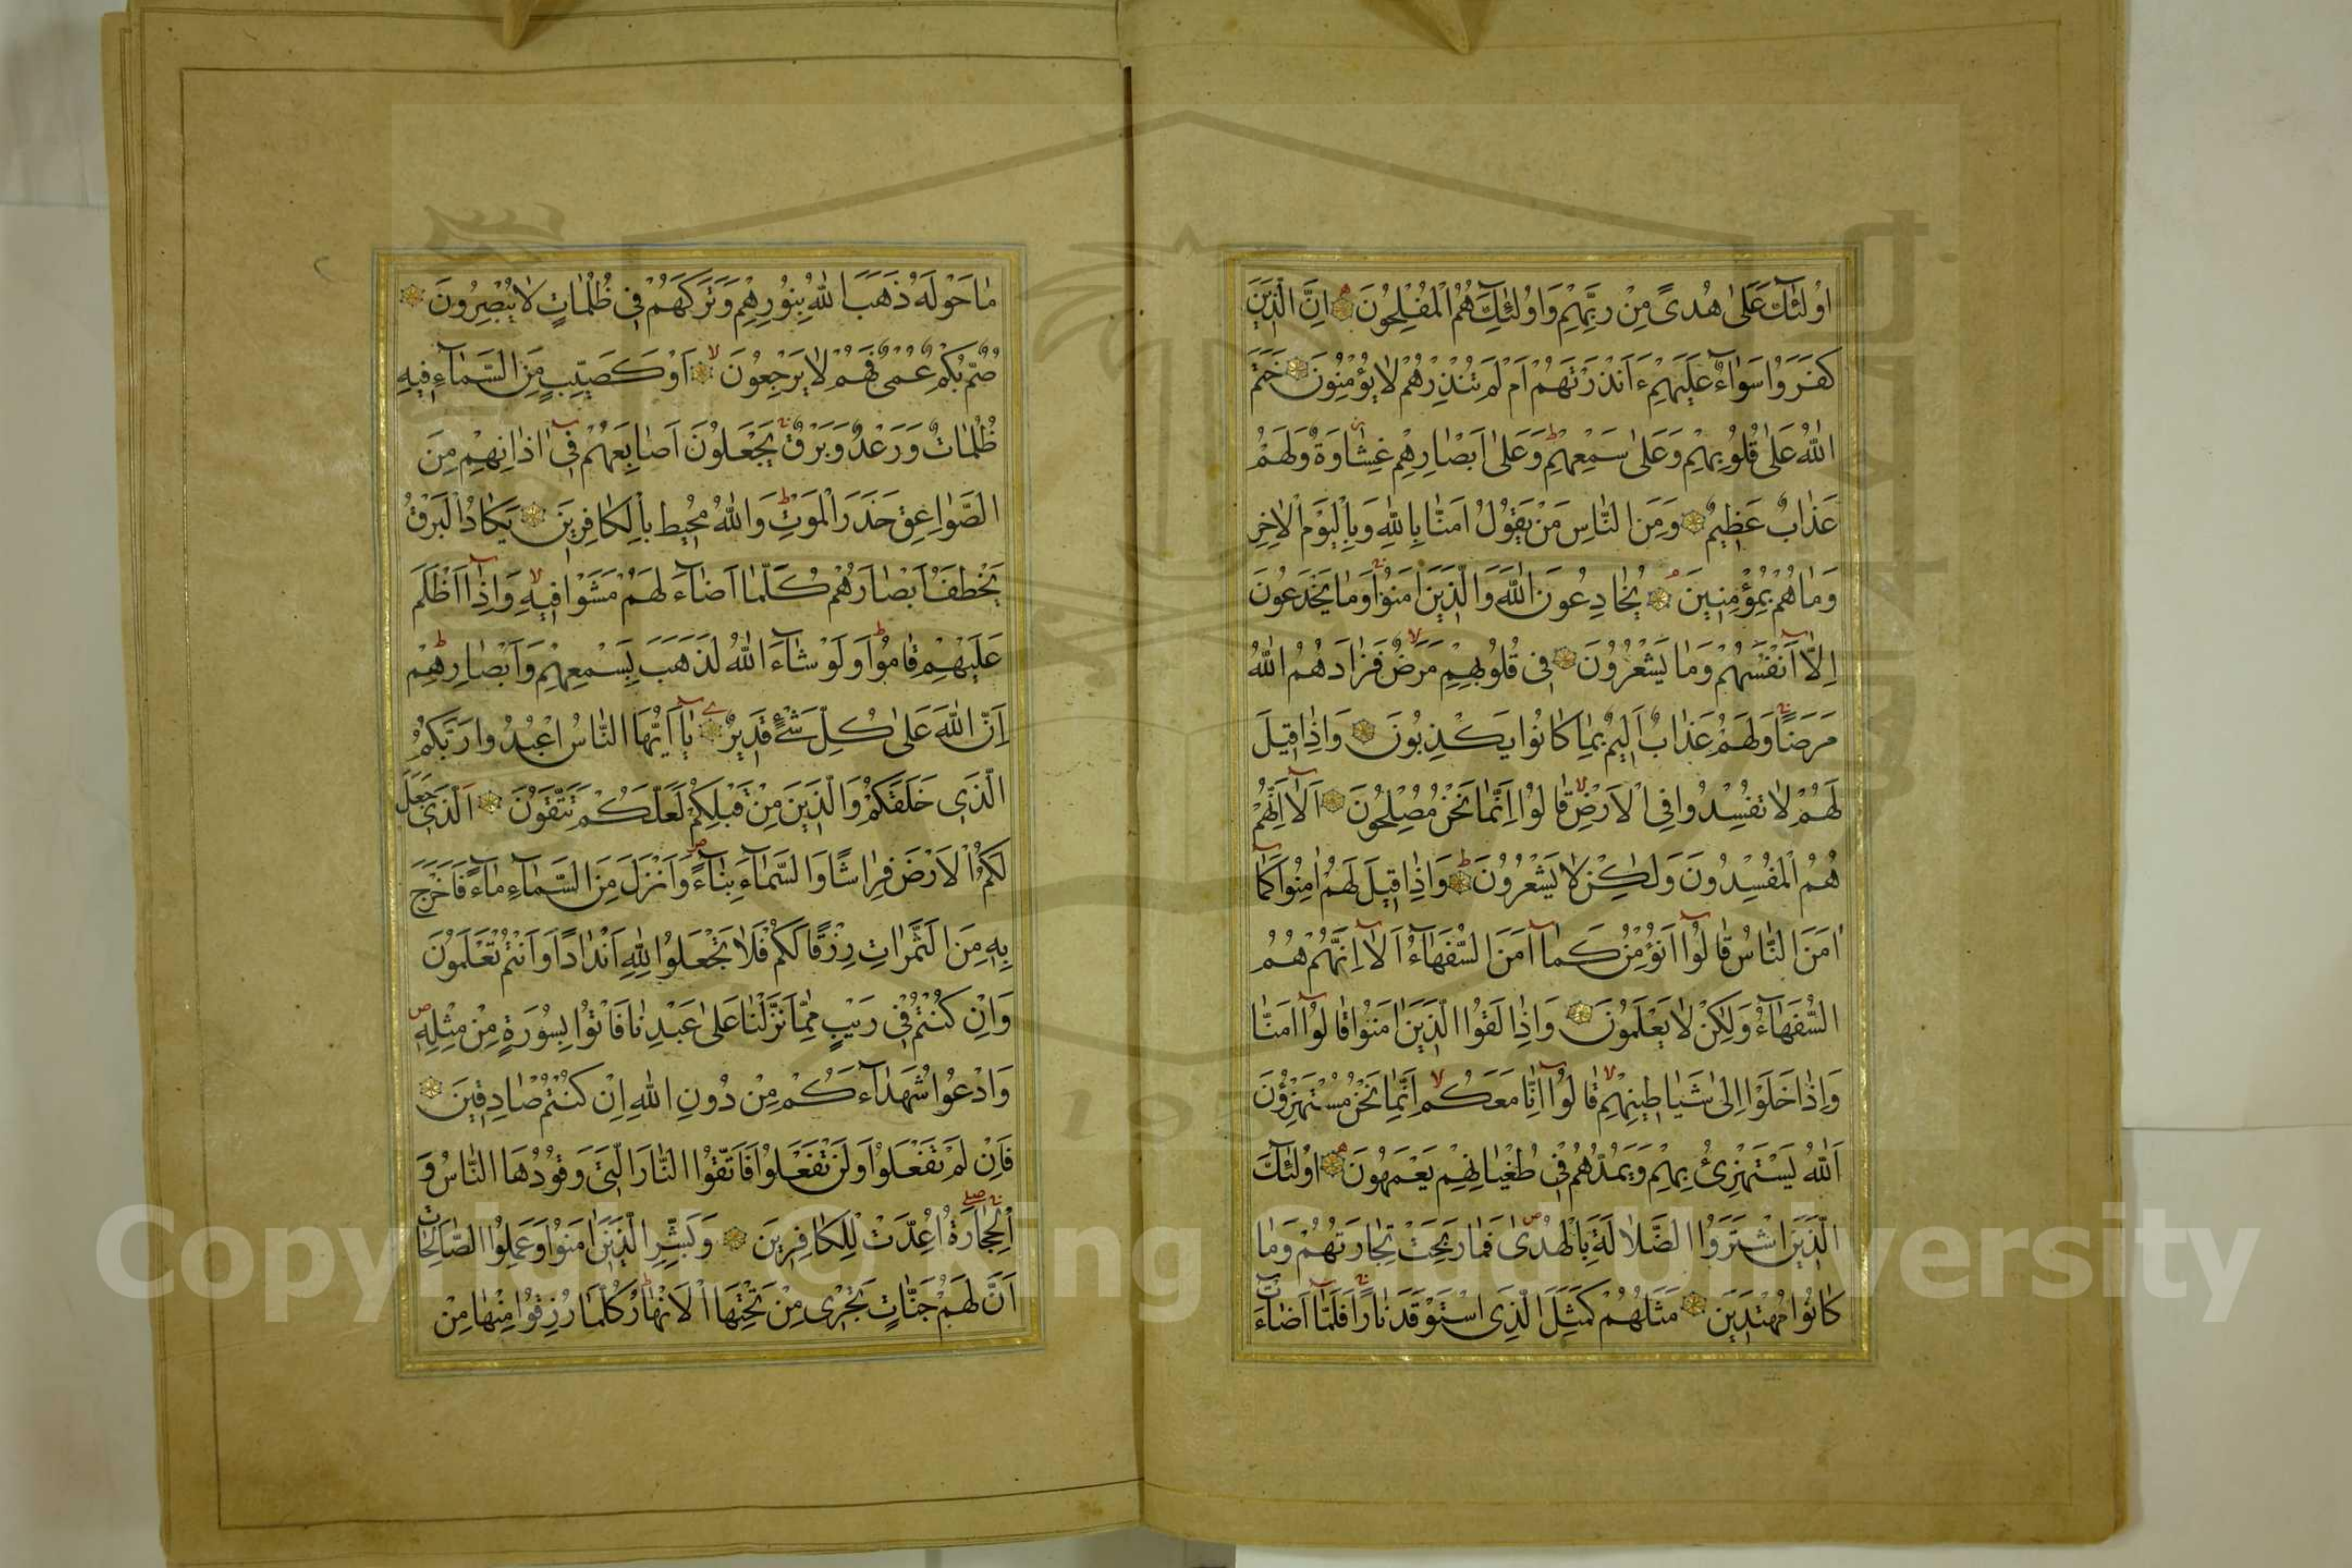 اُولٰئِكَ عَلٰى هُدًى مِنْ رَبِّهِمْ وَاُولٰئِكَ هُمُ الْمُفْلِحُونَ اِنَّ الَّذِينَ
كَفَرُوا سَوَاءٌ عَلَيْهِمْ ءَاَنْذَرْتَهُمْ اَمْ لَمْ تُنْذِرْهُمْ لَا يُؤْمِنُونَ خَتَمَ
اللّٰهُ عَلٰى قُلُوبِهِمْ وَعَلٰى سَمْعِهِمْ وَعَلٰى اَبْصَارِهِمْ غِشَاوَةٌ وَلَهُمْ
عَذَابٌ عَظِيمٌ وَمِنَ النَّاسِ مَنْ يَقُولُ اٰمَنَّا بِاللّٰهِ وَبِالْيَوْمِ الْاٰخِرِ
وَمَا هُمْ بِمُؤْمِنِينَ يُخَادِعُونَ اللّٰهَ وَالَّذِينَ اٰمَنُوا وَمَا يَخْدَعُونَ
اِلَّا اَنْفُسَهُمْ وَمَا يَشْعُرُونَ فِى قُلُوبِهِمْ مَرَضٌ فَزَادَهُمُ اللّٰهُ
مَرَضًا وَلَهُمْ عَذَابٌ اَلِيمٌ بِمَا كَانُوا يَكْذِبُونَ وَاِذَا قِيلَ
لَهُمْ لَا تُفْسِدُوا فِى الْاَرْضِ قَالُوا اِنَّمَا نَحْنُ مُصْلِحُونَ اَلَا اِنَّهُمْ
هُمُ الْمُفْسِدُونَ وَلٰكِنْ لَا يَشْعُرُونَ وَاِذَا قِيلَ لَهُمْ اٰمِنُوا كَمَا
اٰمَنَ النَّاسُ قَالُوا اَنُؤْمِنُ كَمَا اٰمَنَ السُّفَهَاءُ اَلَا اِنَّهُمْ هُمُ
السُّفَهَاءُ وَلٰكِنْ لَا يَعْلَمُونَ وَاِذَا لَقُوا الَّذِينَ اٰمَنُوا قَالُوا اٰمَنَّا
وَاِذَا خَلَوْا اِلٰى شَيَاطِينِهِمْ قَالُوا اِنَّا مَعَكُمْ اِنَّمَا نَحْنُ مُسْتَهْزِؤُنَ
اَللّٰهُ يَسْتَهْزِئُ بِهِمْ وَيَمُدُّهُمْ فِى طُغْيَانِهِمْ يَعْمَهُونَ اُولٰئِكَ
الَّذِينَ اشْتَرَوُا الضَّلَالَةَ بِالْهُدٰى فَمَا رَبِحَتْ تِجَارَتُهُمْ وَمَا
كَانُوا مُهْتَدِينَ مَثَلُهُمْ كَمَثَلِ الَّذِى اسْتَوْقَدَ نَارًا فَلَمَّا اَضَاءَتْ
مَا حَوْلَهُ ذَهَبَ اللّٰهُ بِنُورِهِمْ وَتَرَكَهُمْ فِى ظُلُمَاتٍ لَا يُبْصِرُونَ
صُمٌّ بُكْمٌ عُمْىٌ فَهُمْ لَا يَرْجِعُونَ اَوْ كَصَيِّبٍ مِنَ السَّمَاءِ فِيهِ
ظُلُمَاتٌ وَرَعْدٌ وَبَرْقٌ يَجْعَلُونَ اَصَابِعَهُمْ فِى اٰذَانِهِمْ مِنَ
الصَّوَاعِقِ حَذَرَ الْمَوْتِ وَاللّٰهُ مُحِيطٌ بِالْكَافِرِينَ يَكَادُ الْبَرْقُ
يَخْطَفُ اَبْصَارَهُمْ كُلَّمَا اَضَاءَ لَهُمْ مَشَوْا فِيهِ وَاِذَا اَظْلَمَ
عَلَيْهِمْ قَامُوا وَلَوْ شَاءَ اللّٰهُ لَذَهَبَ بِسَمْعِهِمْ وَاَبْصَارِهِمْ
اِنَّ اللّٰهَ عَلٰى كُلِّ شَىْءٍ قَدِيرٌ يَا اَيُّهَا النَّاسُ اعْبُدُوا رَبَّكُمُ
الَّذِى خَلَقَكُمْ وَالَّذِينَ مِنْ قَبْلِكُمْ لَعَلَّكُمْ تَتَّقُونَ اَلَّذِى جَعَلَ
لَكُمُ الْاَرْضَ فِرَاشًا وَالسَّمَاءَ بِنَاءً وَاَنْزَلَ مِنَ السَّمَاءِ مَاءً فَاَخْرَجَ
بِهِ مِنَ الثَّمَرَاتِ رِزْقًا لَكُمْ فَلَا تَجْعَلُوا لِلّٰهِ اَنْدَادًا وَاَنْتُمْ تَعْلَمُونَ
وَاِنْ كُنْتُمْ فِى رَيْبٍ مِمَّا نَزَّلْنَا عَلٰى عَبْدِنَا فَاْتُوا بِسُورَةٍ مِنْ مِثْلِهِ
وَادْعُوا شُهَدَاءَكُمْ مِنْ دُونِ اللّٰهِ اِنْ كُنْتُمْ صَادِقِينَ
فَاِنْ لَمْ تَفْعَلُوا وَلَنْ تَفْعَلُوا فَاتَّقُوا النَّارَ الَّتِى وَقُودُهَا النَّاسُ وَ
الْحِجَارَةُ اُعِدَّتْ لِلْكَافِرِينَ وَبَشِّرِ الَّذِينَ اٰمَنُوا وَعَمِلُوا الصَّالِحَاتِ
اَنَّ لَهُمْ جَنَّاتٍ تَجْرِى مِنْ تَحْتِهَا الْاَنْهَارُ كُلَّمَا رُزِقُوا مِنْهَا مِنْ
Copyright © King Saud University